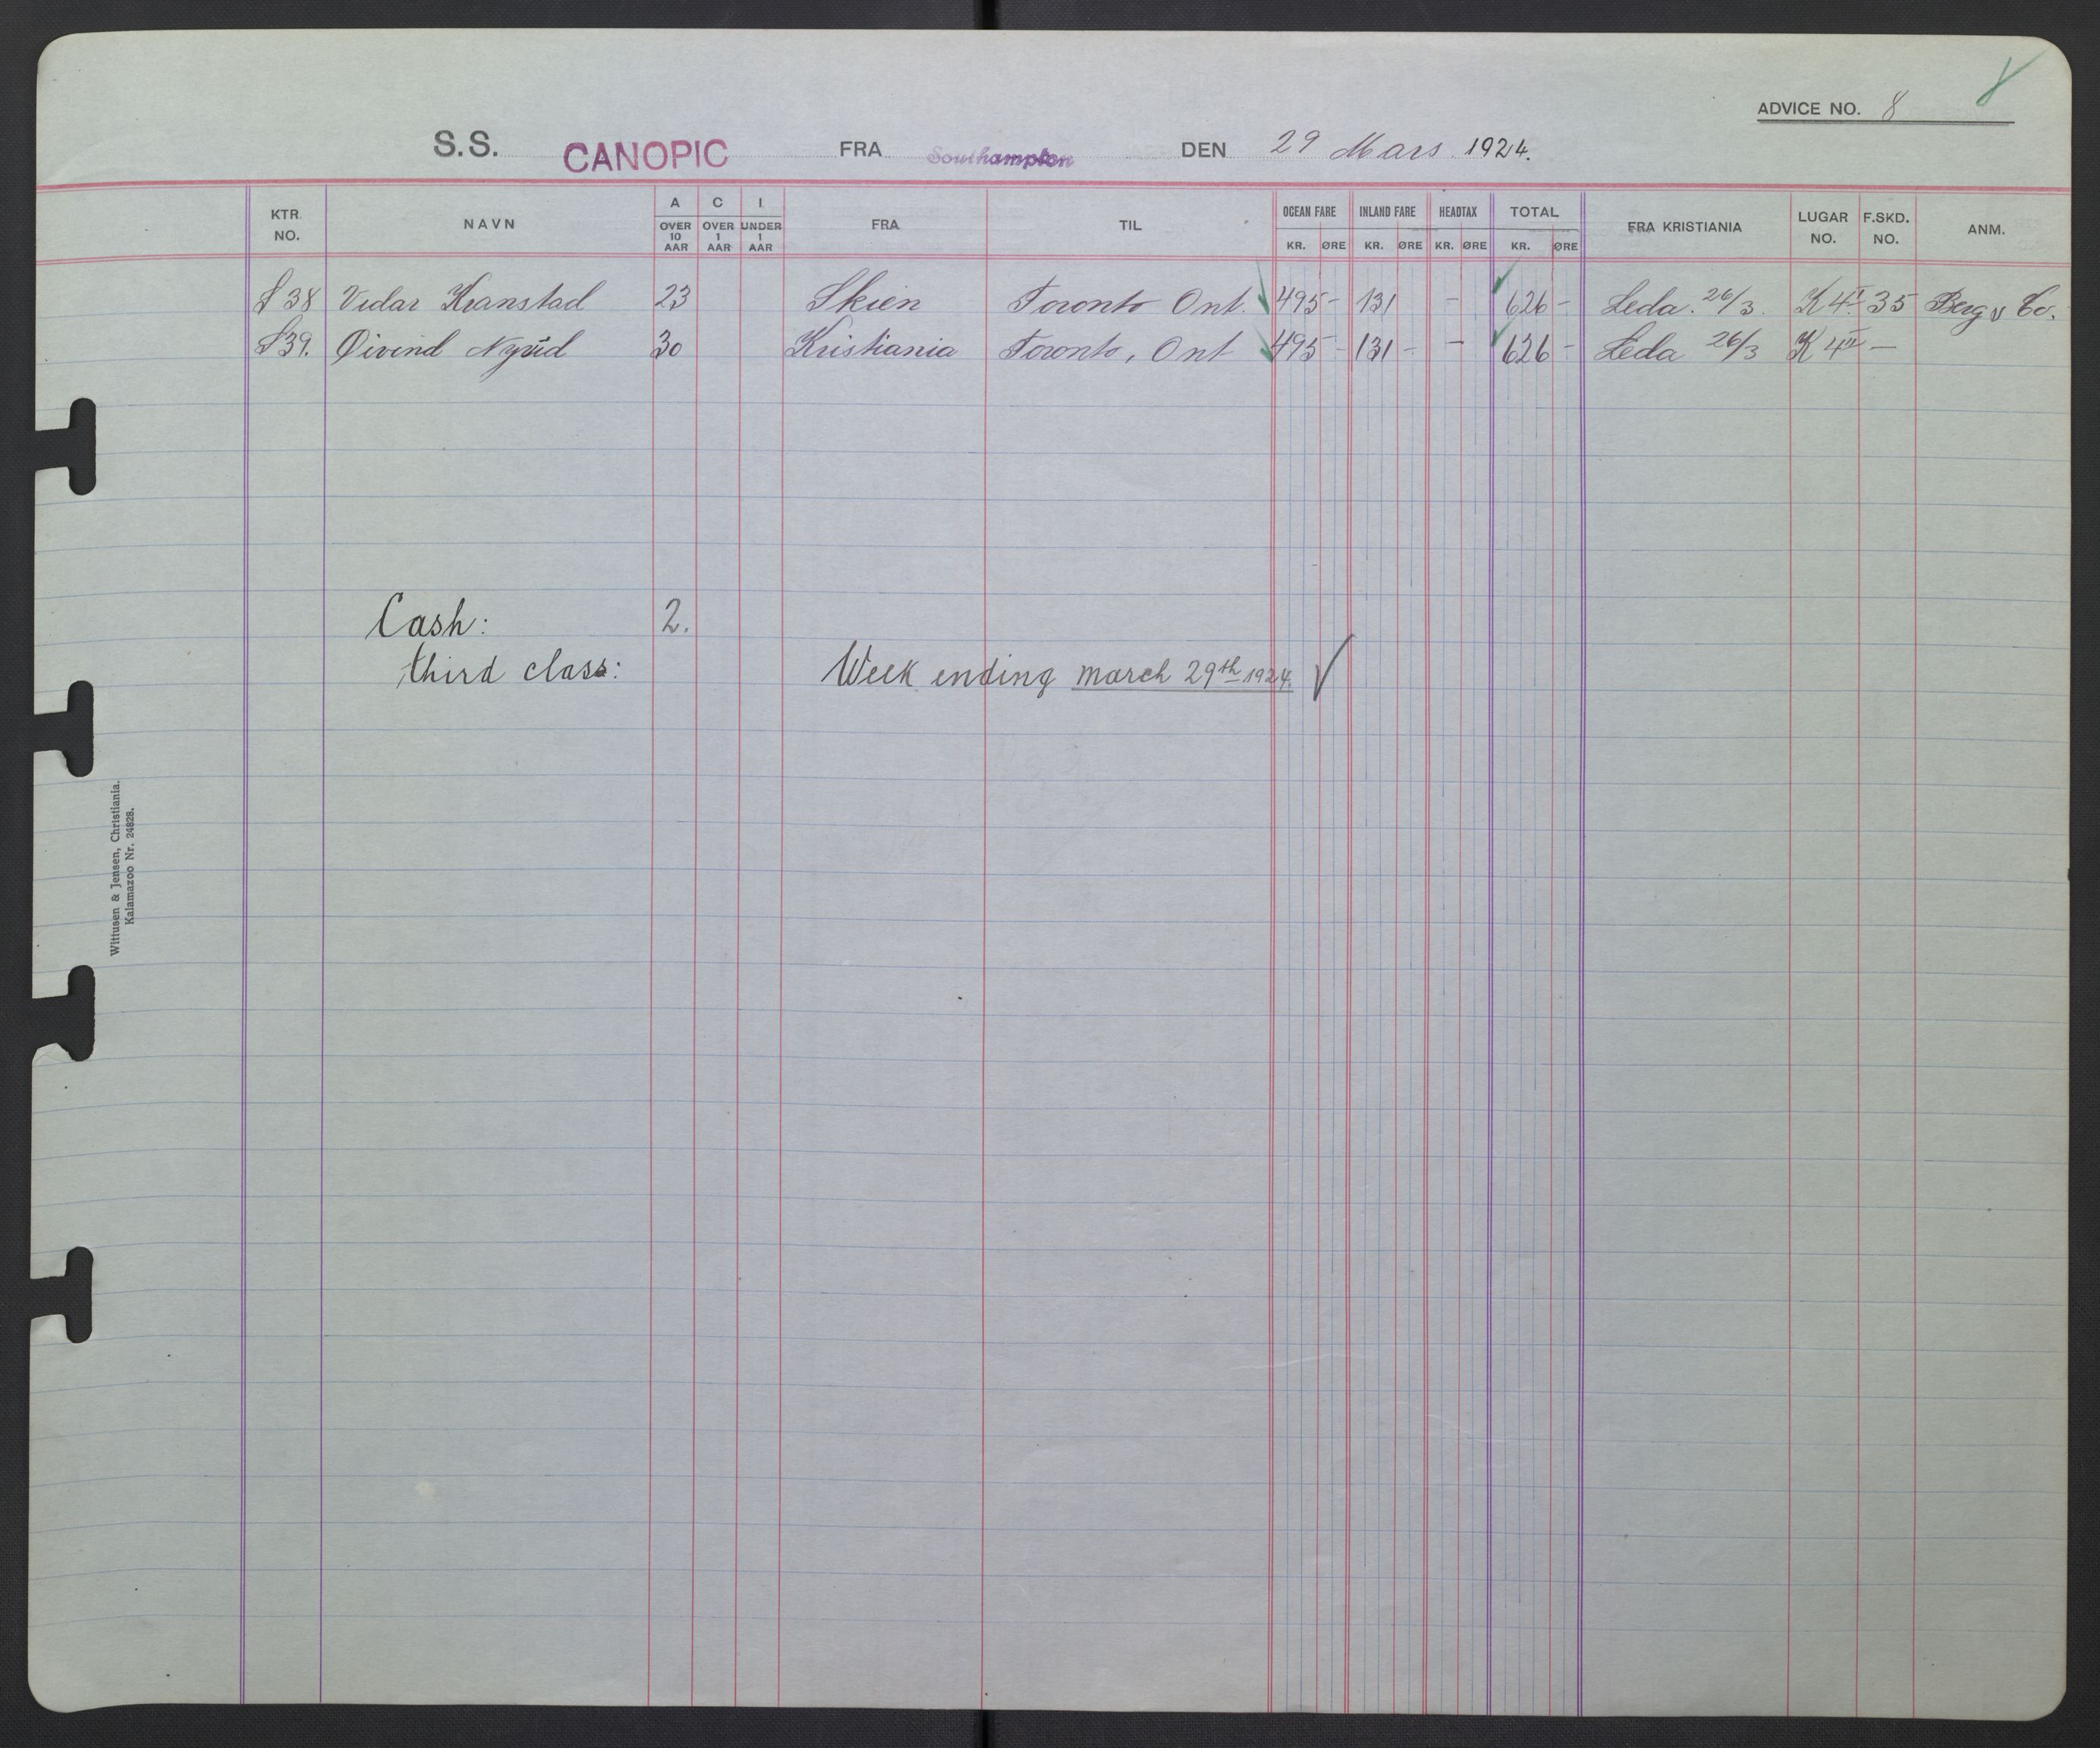 ADVICE NO. 8
S.S. CANOPIC FRA Southampton DEN 29 Mars 1924.
KTR. NO. NAVN A OVER 10 AAR C OVER 1 AAR I UNDER 1 AAR FRA TIL OCEAN FARE KR. ØRE INLAND FARE KR. ØRE HEADTAX KR. ØRE TOTAL KR. ØRE FRA KRISTIANIA LUGAR NO. F.SKD. NO. ANM.
S 38 Vidar Kranstad 23 Skien Toronto Ont. 495 - 131 - 626 - Leda. 26/3. K 4 I 35 Berg & Co.
S 39. Øivind 30 Kristiania Toronto, Ont 495 - 131 - - 626 - Leda 26/3 K 4 II -
Cash: 2.
third class: Week ending march 29th 1924.
Wittusen & Jensen, Christiania.
Kalamazoo Nr. 24828.